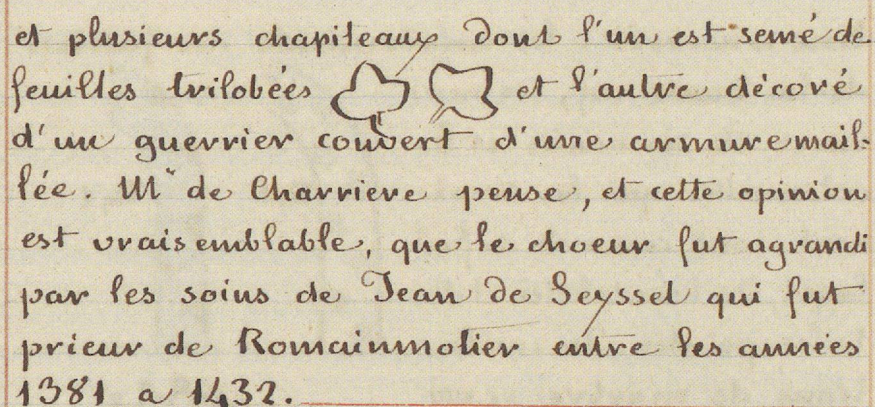 et plusieurs chapiteaux dont l'un est semé de
feuilles trilobées et l'autre décoré
d'un guerrier couvert d'une armure mail-
lée. Mr de Charriere pense, et cette opinion
est vraisemblable, que le choeur fut agrandi
par les soins de Jean de Seyssel qui fut
prieur de Romainmotier entre les années
1381 a 1432.